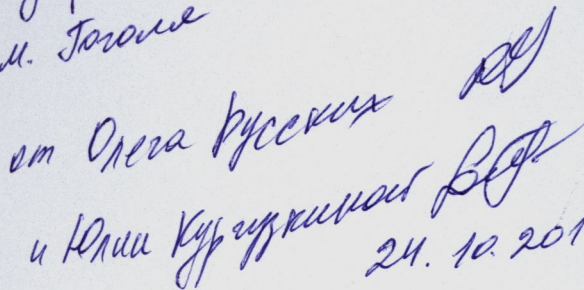 м. Гоголя
от Олега Русских
и Юлии Кургузкиной
24.10.201